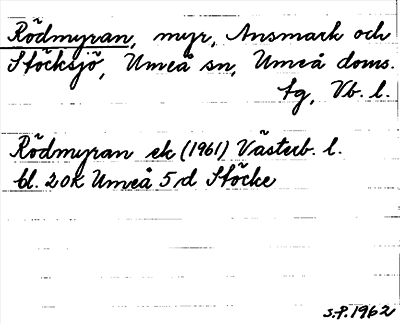 Rödmyran, myr, Ansmark och
Stöcksjö, Umeå sn, Umeå doms.
tg, Vb. l.
Rödmyran ek (1961) Västerb. l.
bl. 20K Umeå 5d Stöcke
S.P. 1962